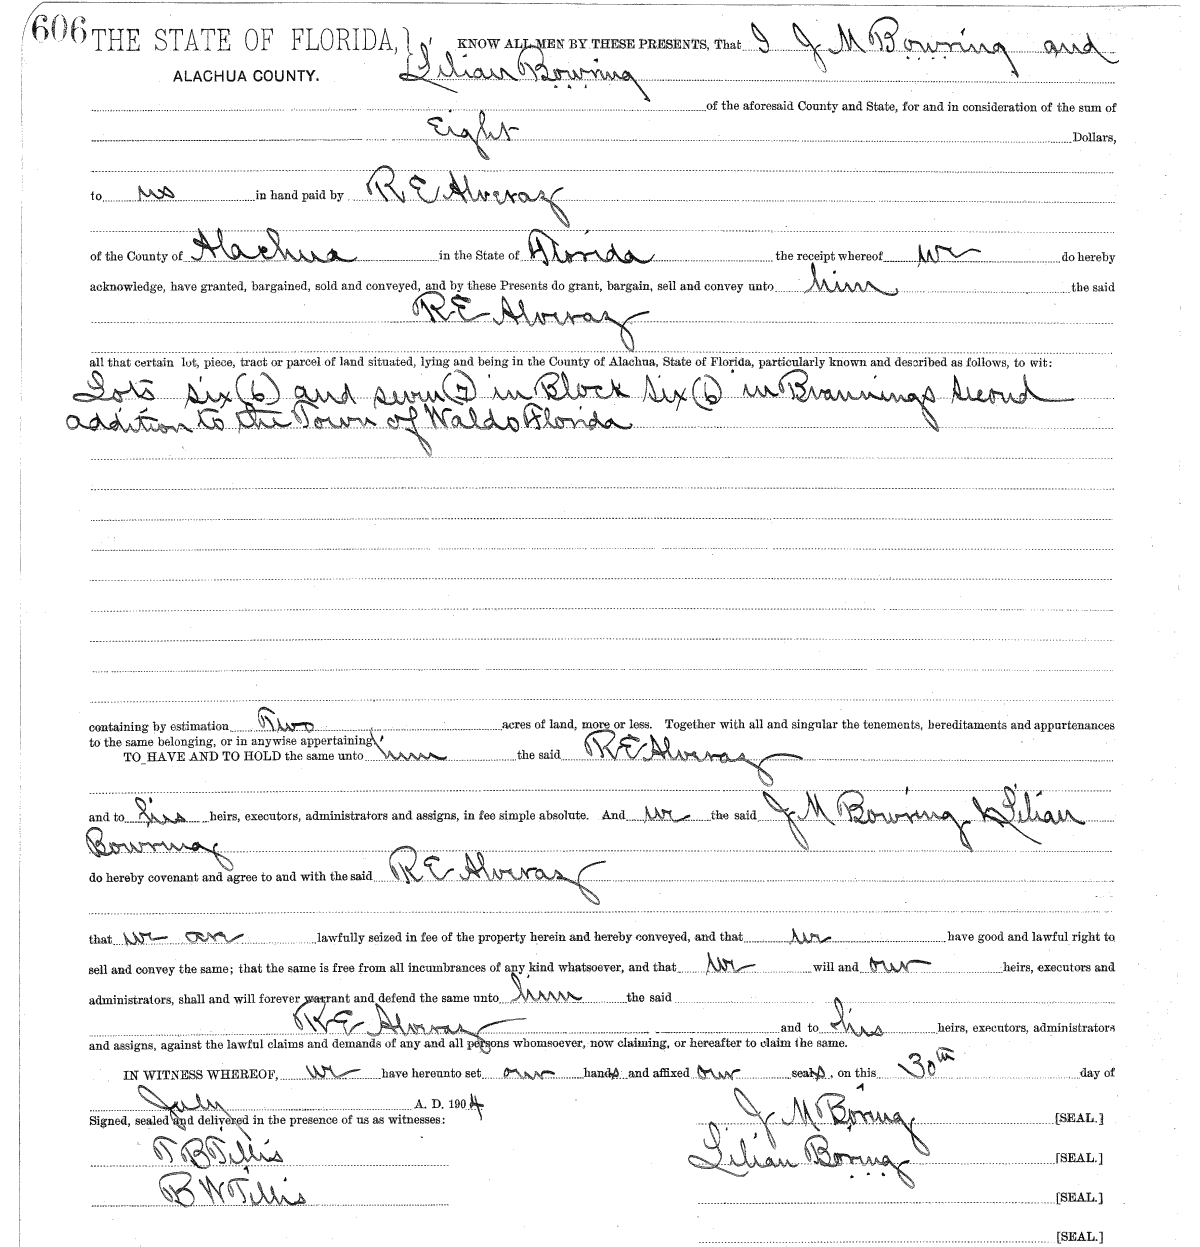 606 THE STATE OF FLORIDA, KNOW ALL MEN BY THESE PRESENTS, That I J M Bowring and
ALACHUA COUNTY. Lilian Bowring
of the aforesaid County and State, for and in consideration of the sum of
Eight Dollars,
to us in hand paid by R E Alveraz
of the County of Alachua in the State of Florida the receipt whereof we do hereby
acknowledge, have granted, bargained, sold and conveyed, and by these Presents do grant, bargain, sell and convey unto him the said
R E Alveraz
all that certain lot, piece, tract or parcel of land situated, lying and being in the County of Alachua, State of Florida, particularly known and described as follows, to wit:
Lots six (6) and seven (7) in Block Six (6) in Brannings Second
addition to the Town of Waldo Florida
containing by estimation Two acres of land, more or less. Together with all and singular the tenements, hereditaments and appurtenances
to the same belonging, or in anywise appertaining
TO HAVE AND TO HOLD the same unto him the said R E Alveraz
and to his heirs, executors, administrators and assigns, in fee simple absolute. And we the said J M Bowring & Lilian
Bowring
do hereby covenant and agree to and with the said R E Alveraz
that we are lawfully seized in fee of the property herein and hereby conveyed, and that we have good and lawful right to
sell and convey the same; that the same is free from all incumbrances of any kind whatsoever, and that we will and our heirs, executors and
administrators, shall and will forever warrant and defend the same unto him the said
R E Alveraz and to his heirs, executors, administrators
and assigns, against the lawful claims and demands of any and all persons whomsoever, now claiming, or hereafter to claim the same.
IN WITNESS WHEREOF, we have hereunto set our hands and affixed our seals, on this 30th day of
July A. D. 1904
Signed, sealed and delivered in the presence of us as witnesses: J M Boring [SEAL.]
T B Tillis Lilian Boring [SEAL.]
B W Tillis [SEAL.]
[SEAL.]